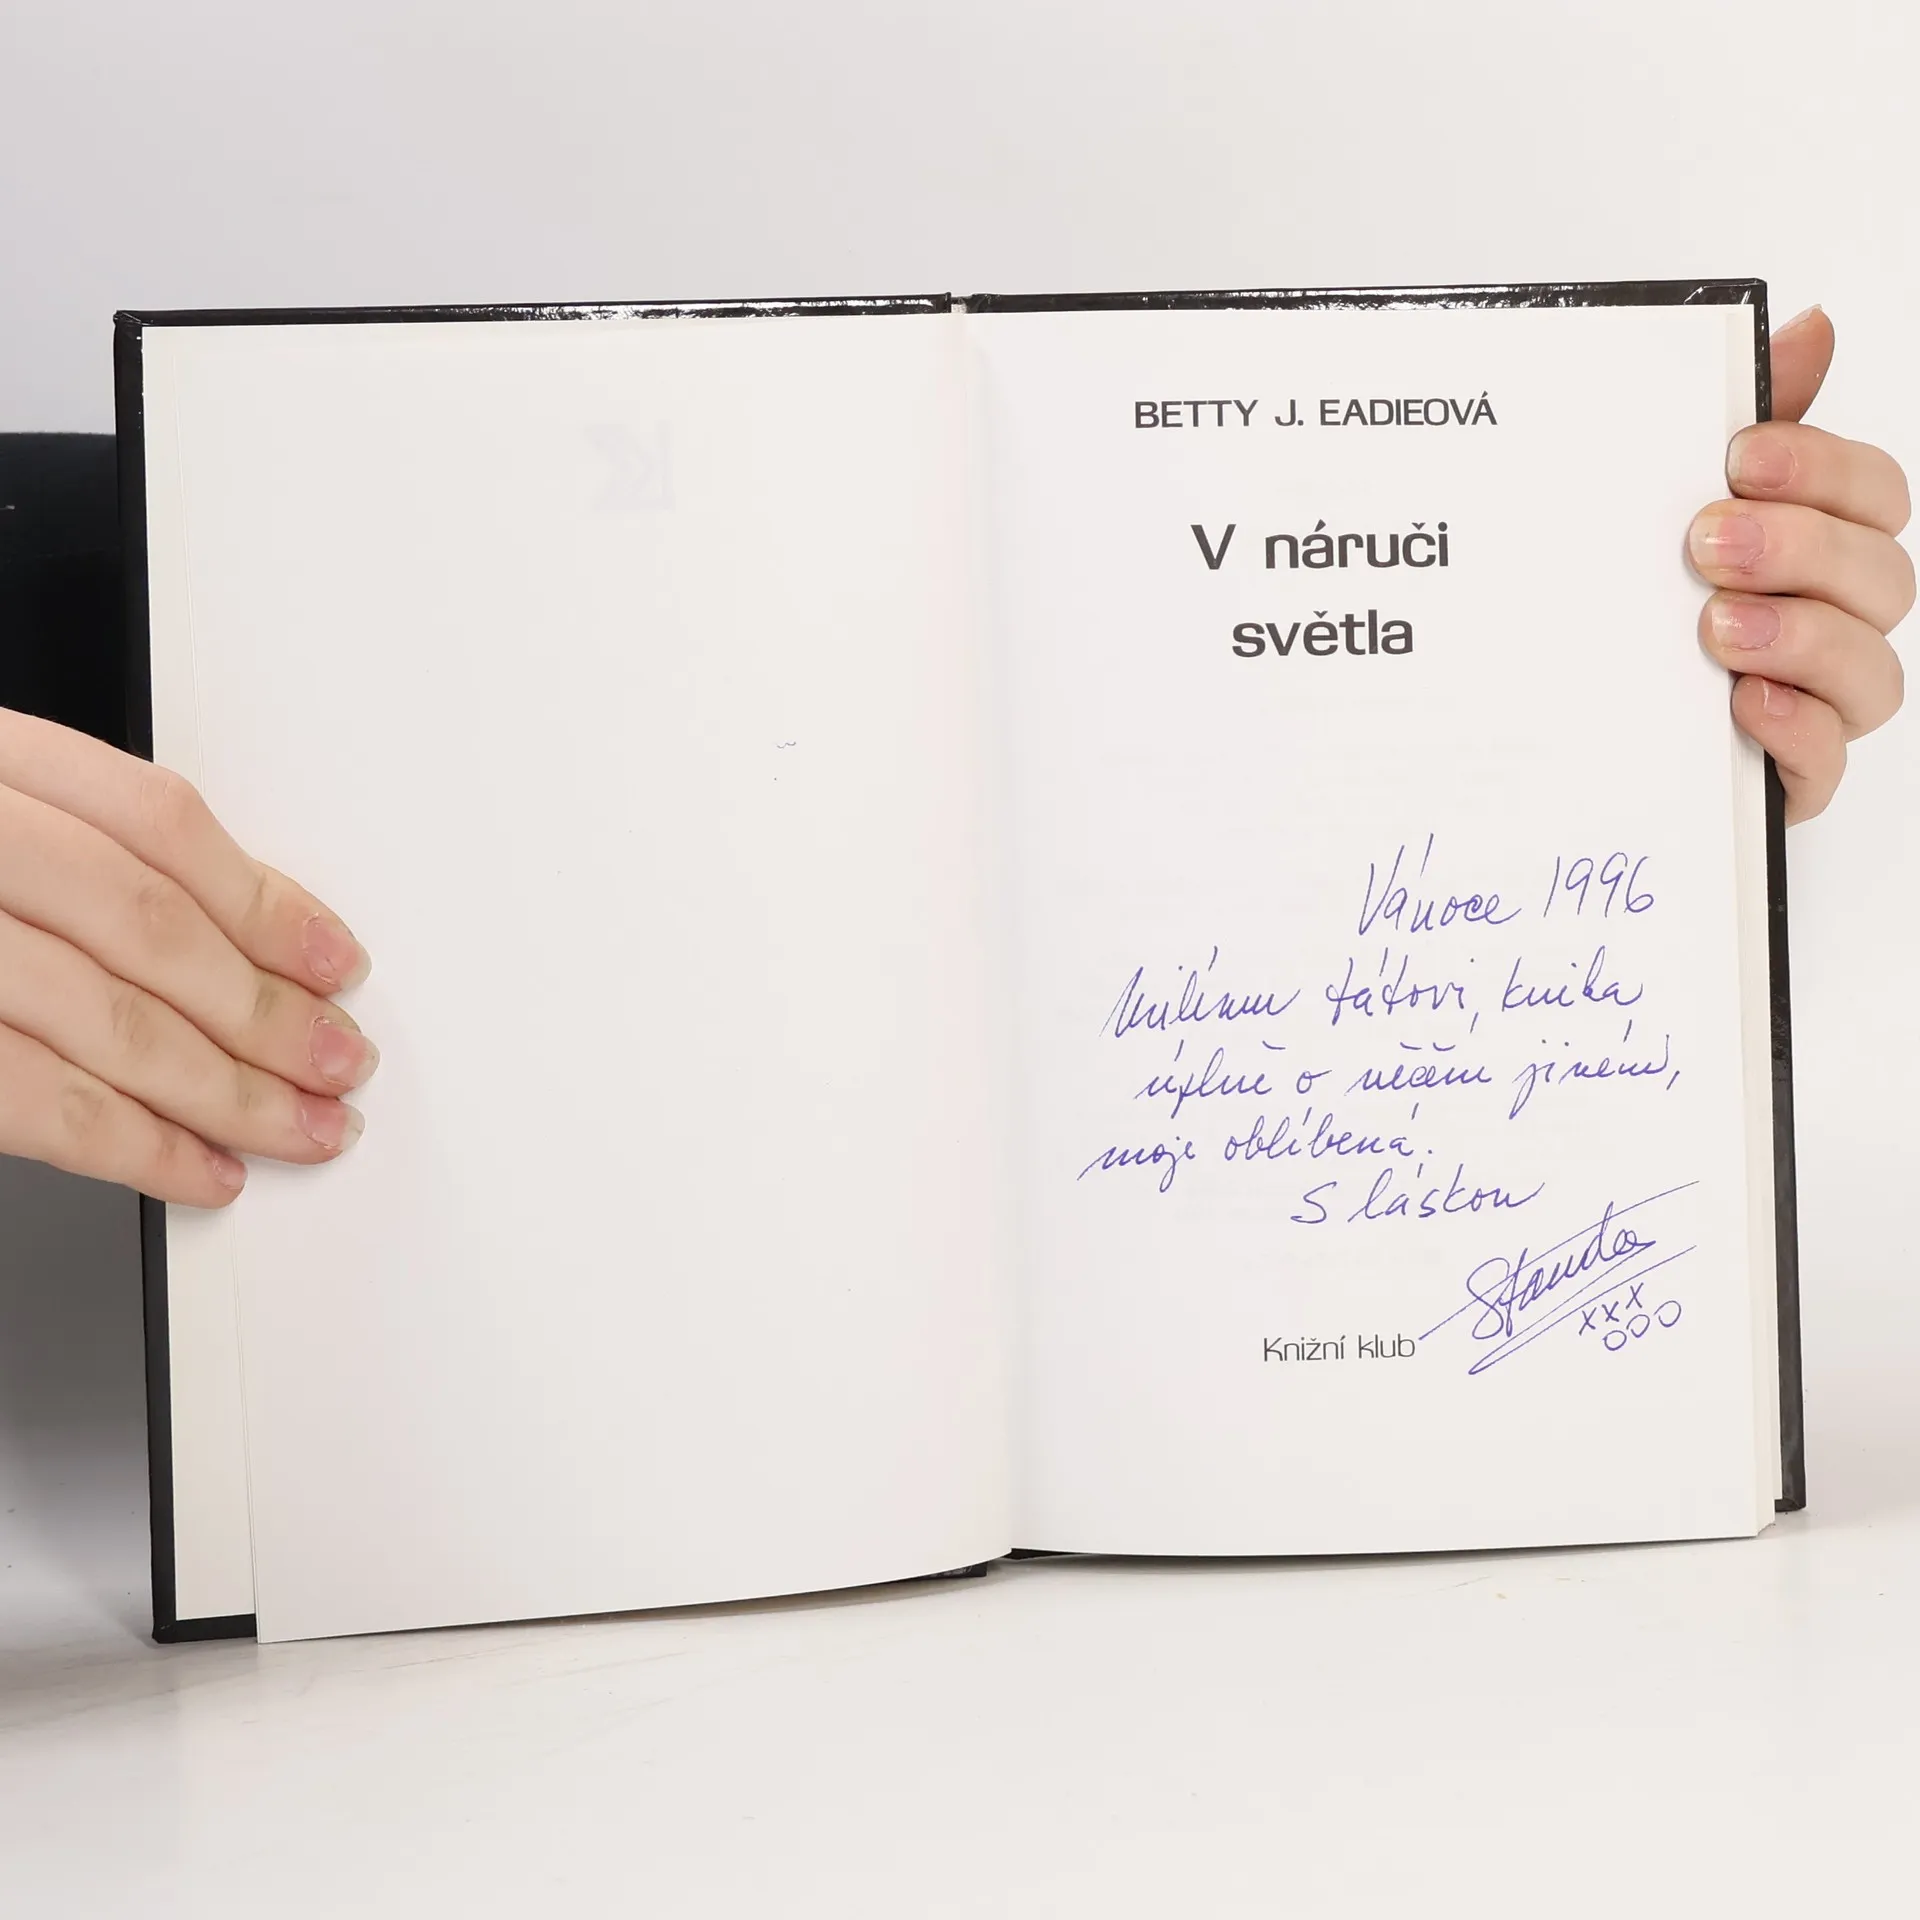 BETTY J. EADIEOVÁ
V náruči
světla
Vánoce 1996
Milému tátovi, kniha
úplně o něčem jiném,
moje oblíbená.
S láskou
Standa
xxx
OOO
Knižní klub